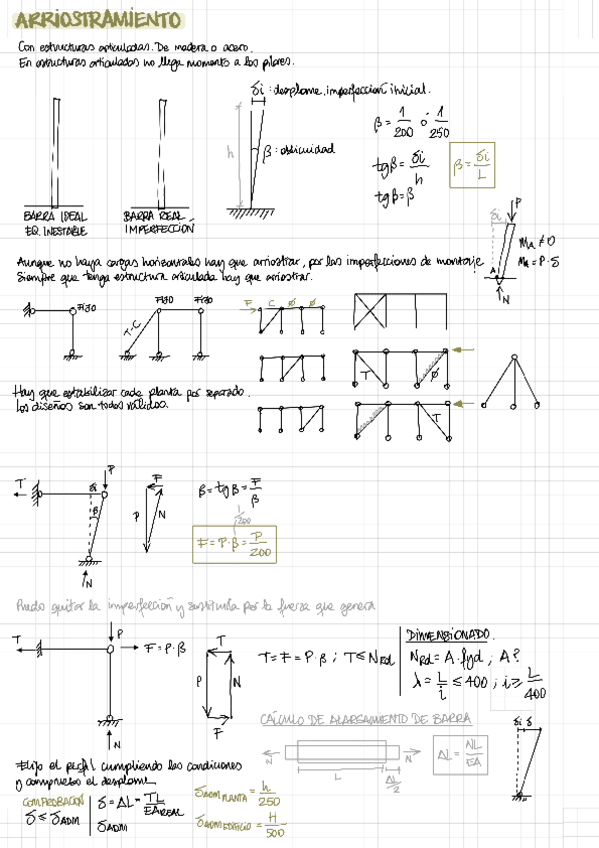 ARRIOSTRAMIENTO
Con estructuras articuladas. De madera o acero.
En estructuras articuladas no llega momento a los pilares.
δi : desplome, imperfección inicial.
β = 1/200 ó 1/250
h
β : oblicuidad
tgβ = δi/h
β = δi/L
tgβ = β
BARRA IDEAL
EQ. INESTABLE
BARRA REAL
IMPERFECCIÓN
δi
P
MA ≠ 0
MA = P·δ
A
N
Aunque no haya cargas horizontales hay que arriostrar, por las imperfecciones de montaje.
Siempre que tenga estructura articulada hay que arriostrar.
FIJO
FIJO
FIJO
T-C
F
C
Ø
Ø
T
Ø
T
Hay que estabilizar cada planta por separado.
Los diseños son todos válidos.
T
δi
P
β
N
F
P
N
β = tgβ = F/β
1/200
F = P·β = P/200
Puedo quitar la imperfección y sustituirla por la fuerza que genera
T
P
F = P·β
N
T
P
N
F
T = F = P·β ; T ≤ NRd
DIMENSIONADO.
NRd = A·fyd ; A?
λ = L/i ≤ 400 ; i ≥ L/400
CÁLCULO DE ALARGAMIENTO DE BARRA
N
N
L
ΔL/2
ΔL = NL/EA
δi
δ
Elijo el perfil cumpliendo las condiciones
y compruebo el desplome
COMPROBACIÓN
δ ≤ δADM
δ = ΔL = TL/EAREAL
δADM
δADM PLANTA = h/250
δADM EDIFICIO = H/500